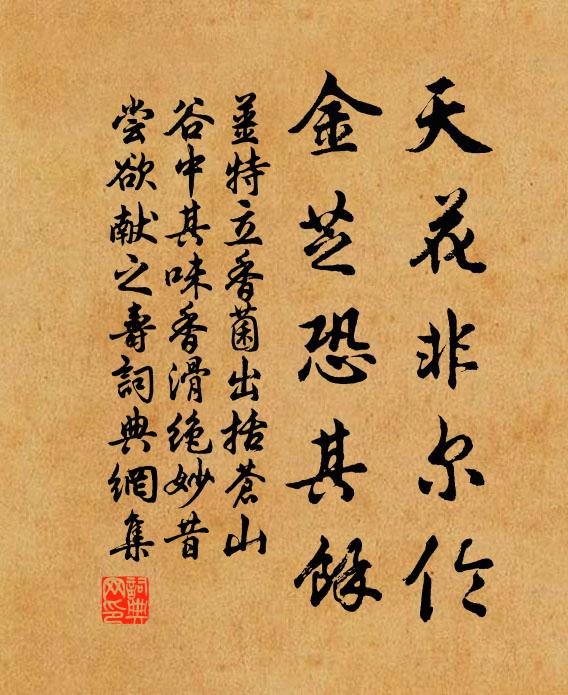 天花非尔伦
金芝恐其餘
薑特立香菌出括蒼山
谷中其味香滑絶妙昔
尝欲献之壽詞典網集
詞典
网印